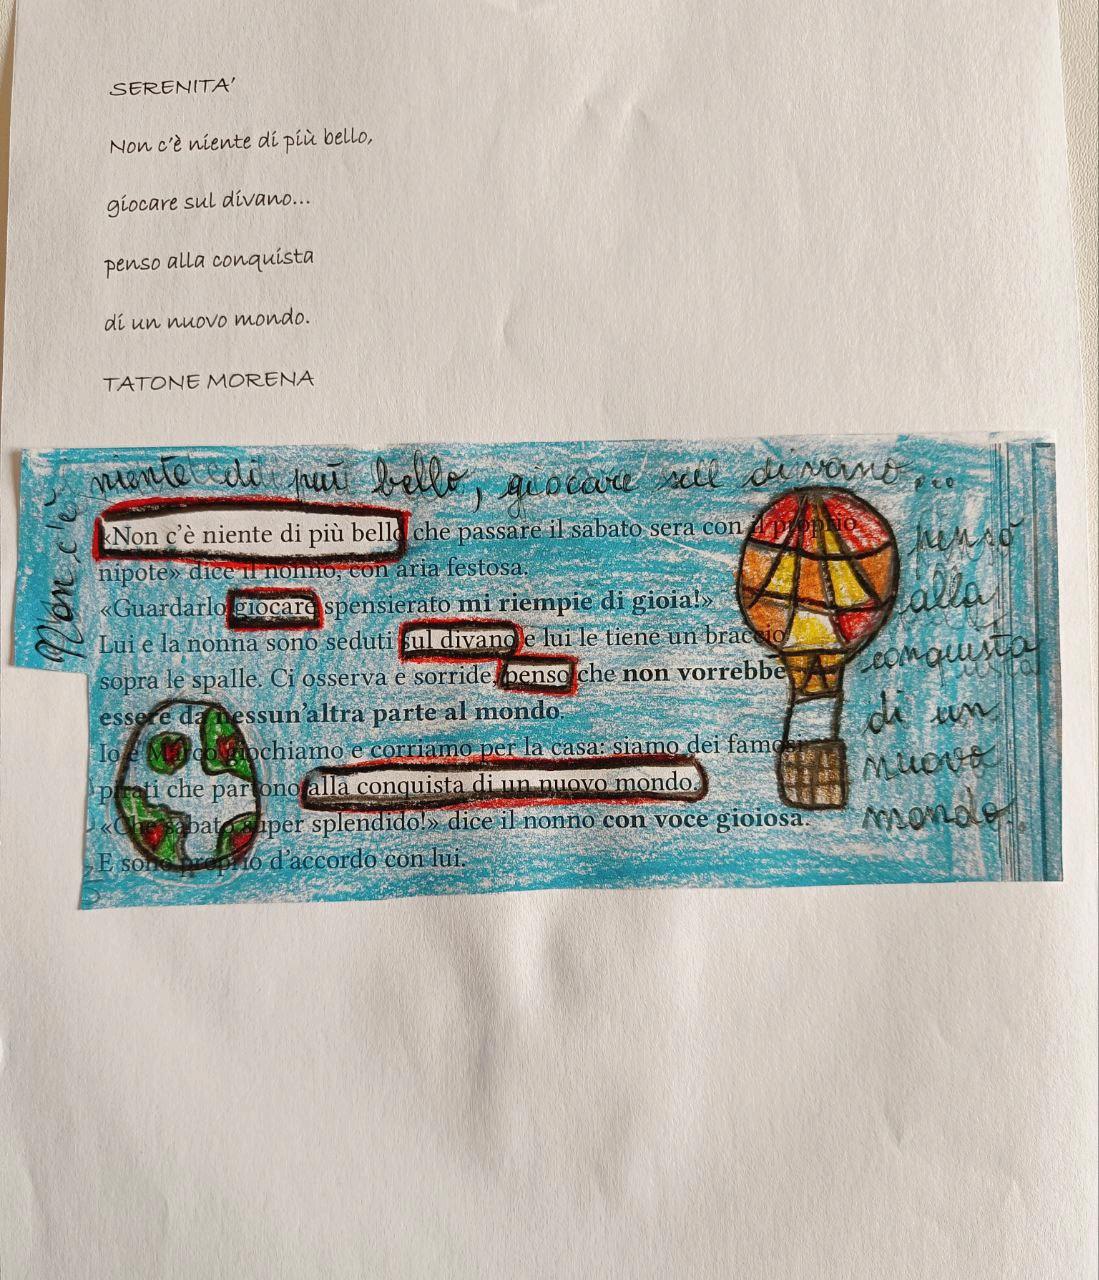 SERENITA'
Non c'è niente di più bello,
giocare sul divano...
penso alla conquista
di un nuovo mondo.
TATONE MORENA
Non c'è
niente di più bello, giocare sul divano...
penso
alla
conquista
di un
nuovo
mondo.
«Non c'è niente di più bello che passare il sabato sera con il proprio
nipote» dice il nonno, con aria festosa.
«Guardarlo giocare spensierato mi riempie di gioia!»
Lui e la nonna sono seduti sul divano e lui le tiene un braccio
sopra le spalle. Ci osserva e sorride, penso che non vorrebbe
essere da nessun'altra parte al mondo.
Io e Marco giochiamo e corriamo per la casa: siamo dei famosi
pirati che partono alla conquista di un nuovo mondo.
«Che sabato super splendido!» dice il nonno con voce gioiosa.
E sono proprio d'accordo con lui.